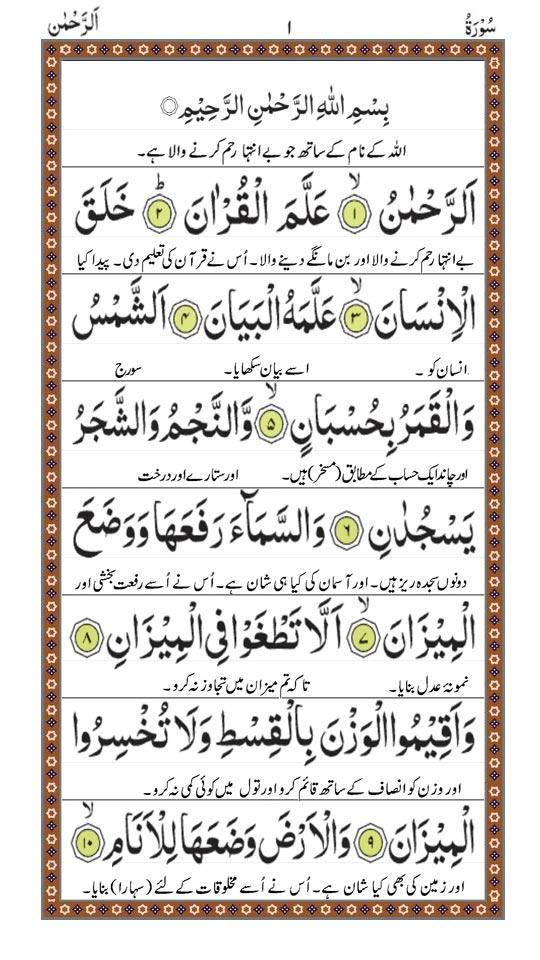 سُوْرَةُ ١ اَلرَّحْمٰن
بِسْمِ اللّٰهِ الرَّحْمٰنِ الرَّحِيْمِ
اللہ کے نام کے ساتھ جو بے انتہا رحم کرنے والا ہے۔
اَلرَّحْمٰنُ ۙ﴿١﴾ عَلَّمَ الْقُرْاٰنَ ؕ﴿٢﴾ خَلَقَ
بے انتہا رحم کرنے والا اور بن مانگے دینے والا۔ اُس نے قرآن کی تعلیم دی۔ پیدا کیا
الْاِنْسَانَ ۙ﴿٣﴾ عَلَّمَهُ الْبَيَانَ ﴿۴﴾ اَلشَّمْسُ
انسان کو ۔ اسے بیان سکھایا۔ سورج
وَالْقَمَرُ بِحُسْبَانٍ ۙ﴿۵﴾ وَّالنَّجْمُ وَالشَّجَرُ
اور چاند ایک حساب کے مطابق (مسخر) ہیں۔ اور ستارے اور درخت
يَسْجُدٰنِ ﴿۶﴾ وَالسَّمَآءَ رَفَعَهَا وَوَضَعَ
دونوں سجدہ ریز ہیں۔ اور آسمان کی کیا ہی شان ہے۔ اُس نے اُسے رفعت بخشی اور
الْمِيْزَانَ ۙ﴿٧﴾ اَلَّا تَطْغَوْا فِى الْمِيْزَانِ ﴿٨﴾
نمونۂ عدل بنایا۔ تا کہ تم میزان میں تجاوز نہ کرو ۔
وَاَقِيْمُوا الْوَزْنَ بِالْقِسْطِ وَلَا تُخْسِرُوا
اور وزن کو انصاف کے ساتھ قائم کرو اور تول میں کوئی کمی نہ کرو۔
الْمِيْزَانَ ﴿٩﴾ وَالْاَرْضَ وَضَعَهَا لِلْاَنَامِ ۙ﴿١٠﴾
اور زمین کی بھی کیا شان ہے۔ اُس نے اُسے مخلوقات کے لئے (سہارا) بنایا۔